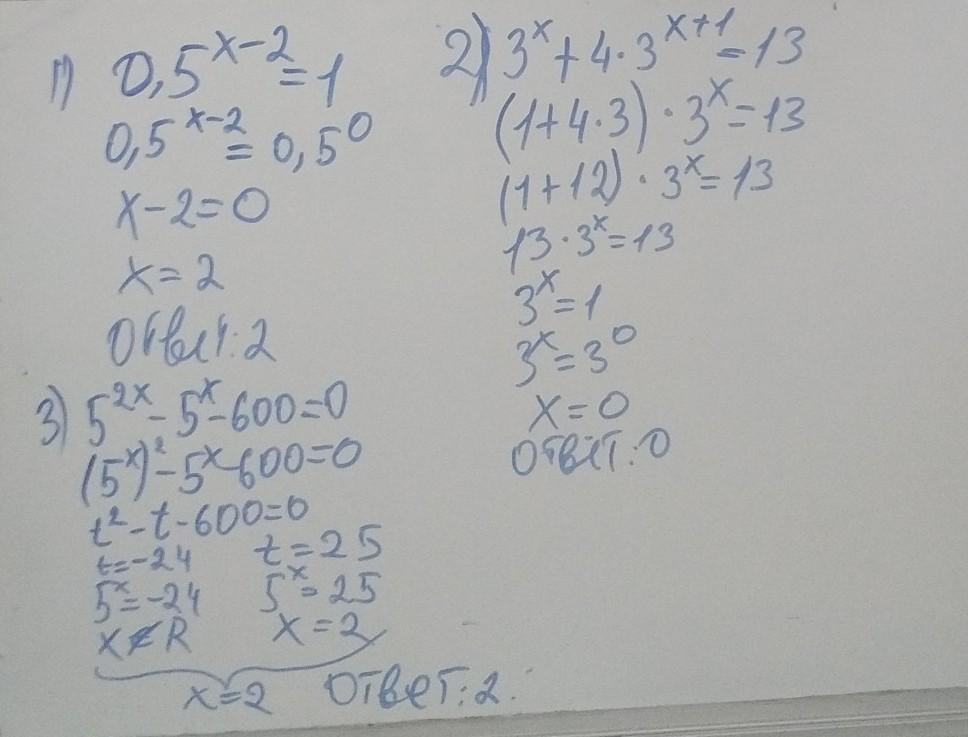 1) 0,5^(x-2) = 1
0,5^(x-2) = 0,5^0
x-2=0
x=2
Ответ: 2
2) 3^x + 4·3^(x+1) = 13
(1+4·3)·3^x = 13
(1+12)·3^x = 13
13·3^x = 13
3^x = 1
3^x = 3^0
x = 0
Ответ: 0
3) 5^(2x) - 5^x - 600 = 0
(5^x)^2 - 5^x - 600 = 0
t^2 - t - 600 = 0
t = -24 t = 25
5^x = -24 5^x = 25
x ∉ R x = 2
x = 2 Ответ: 2.